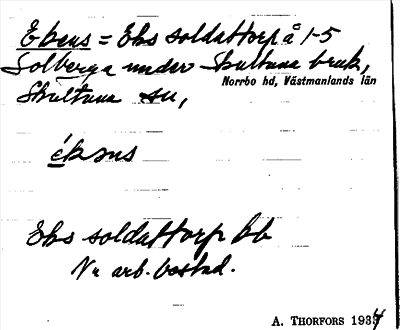 Ekens = Eks soldattorp å 1-5
Solberga under Skultuna bruk,
Norrbo hd, Västmanlands län
Skultuna sn,
ékɔns
Eks soldattorp bb
Nu arb. bostad.
A. THORFORS 1934